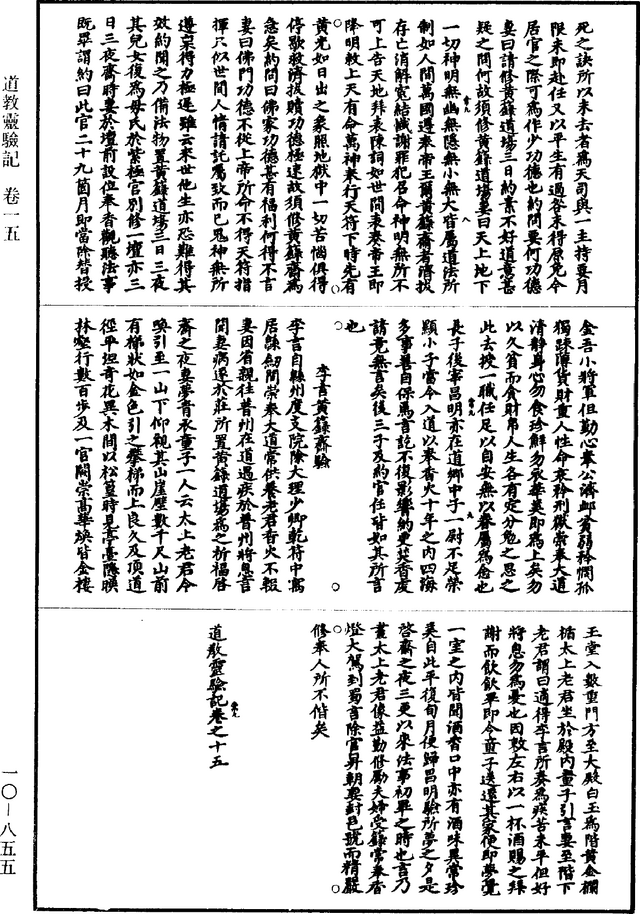 死之訣所以未去者為天司與一主持要月
限未即赴任又以平生有過咎未得原免今
居官之際可為作少功德也約問要何功德
妻曰請修黃籙道場三日約素不好道意甚
疑之問何故須修黃籙道場妻曰天上地下
一切神明無幽無隱無小無大皆屬道法所
制如人間萬國遵奉帝王爾黃籙齋者濟拔
存亡消解冤結懺謝罪犯召命神明無所不
可上告天地拜表陳詞如世間表奏帝王即
降明敕上天有命萬神奉行天符下時先有
黃光如日出之象照地獄中一切苦惱俱得
停歇救濟拔贖功德極速故須修黃籙齋為
急矣約問曰佛家功德甚有福利何得不言
妻曰佛門功德不從上帝所命不得天符指
揮只似世間人情請託囑致而已鬼神無所
遵稟得力極遲雖云來世他生亦恐難得其
效約聞之乃備法物置黃籙道場三日三夜
其兒女復為母氏於紫極宮別修一壇亦三
日三夜齋時妻於壇前設位奉香觀聽法事
既畢謂約曰此官二十九箇月即當除替授
金吾小將軍但勤心奉公濟邺貧弱矜憫孤
獨踈薄貨財重人性命哀矜刑獄崇奉大道
清靜身心勿食珍鮮勿衣華美即為上矣勿
以久貧而貪財帛人生各有定分勉之思之
此去授一職任足以自安無以眷屬為念也
長子後宰昌明亦在道鄉中子一尉不足榮
顯小子當令入道以奉香火十年之內四海
多事善自保焉言訖不復影響約更焚香虔
請竟無言矣後三子及約官任皆如其所言
也
李言黃籙齋驗
李言自縣州度支院除大理少卿乾符中寓
居縣劒間崇奉大道常供養老君香火不輟
妻因省親往普州在道遇疾於普州將息言
聞妻病遂求莊所置黃籙道場為之祈福啓
齋之夜妻夢青衣童子一人云太上老君令
喚引至一山下仰視其山崖壁數千尺山前
有梯狀如金色引之攀梯而上良久及頂道
徑平坦奇花異木間以松篁時見亭臺隱映
林壑行數百步及一宮闕崇高華煥皆金樓
玉堂入數重門方至大殿白玉為階黃金欄
楯太上老君坐於殿內童子引言妻至階下
老君謂曰適得李言所奏為疾苦未平但好
將息勿為憂也因敕左右以一杯酒賜之拜
謝而飲飲畢即令童子送還其家便即夢覺
一室之內皆聞酒香口中亦有酒味異常珍
美自此平復旬月便歸昌明驗所夢之夕是
啓齋之夜三更以來法事初畢之時也言乃
畫太上老君像益勤修勵夫婦受籙常奉香
燈大駕到蜀言除官昇朝妻封邑號而精嚴
修奉人所不偕矣
道教靈驗記卷之十五
道教靈驗記　卷一五
一〇－八五五